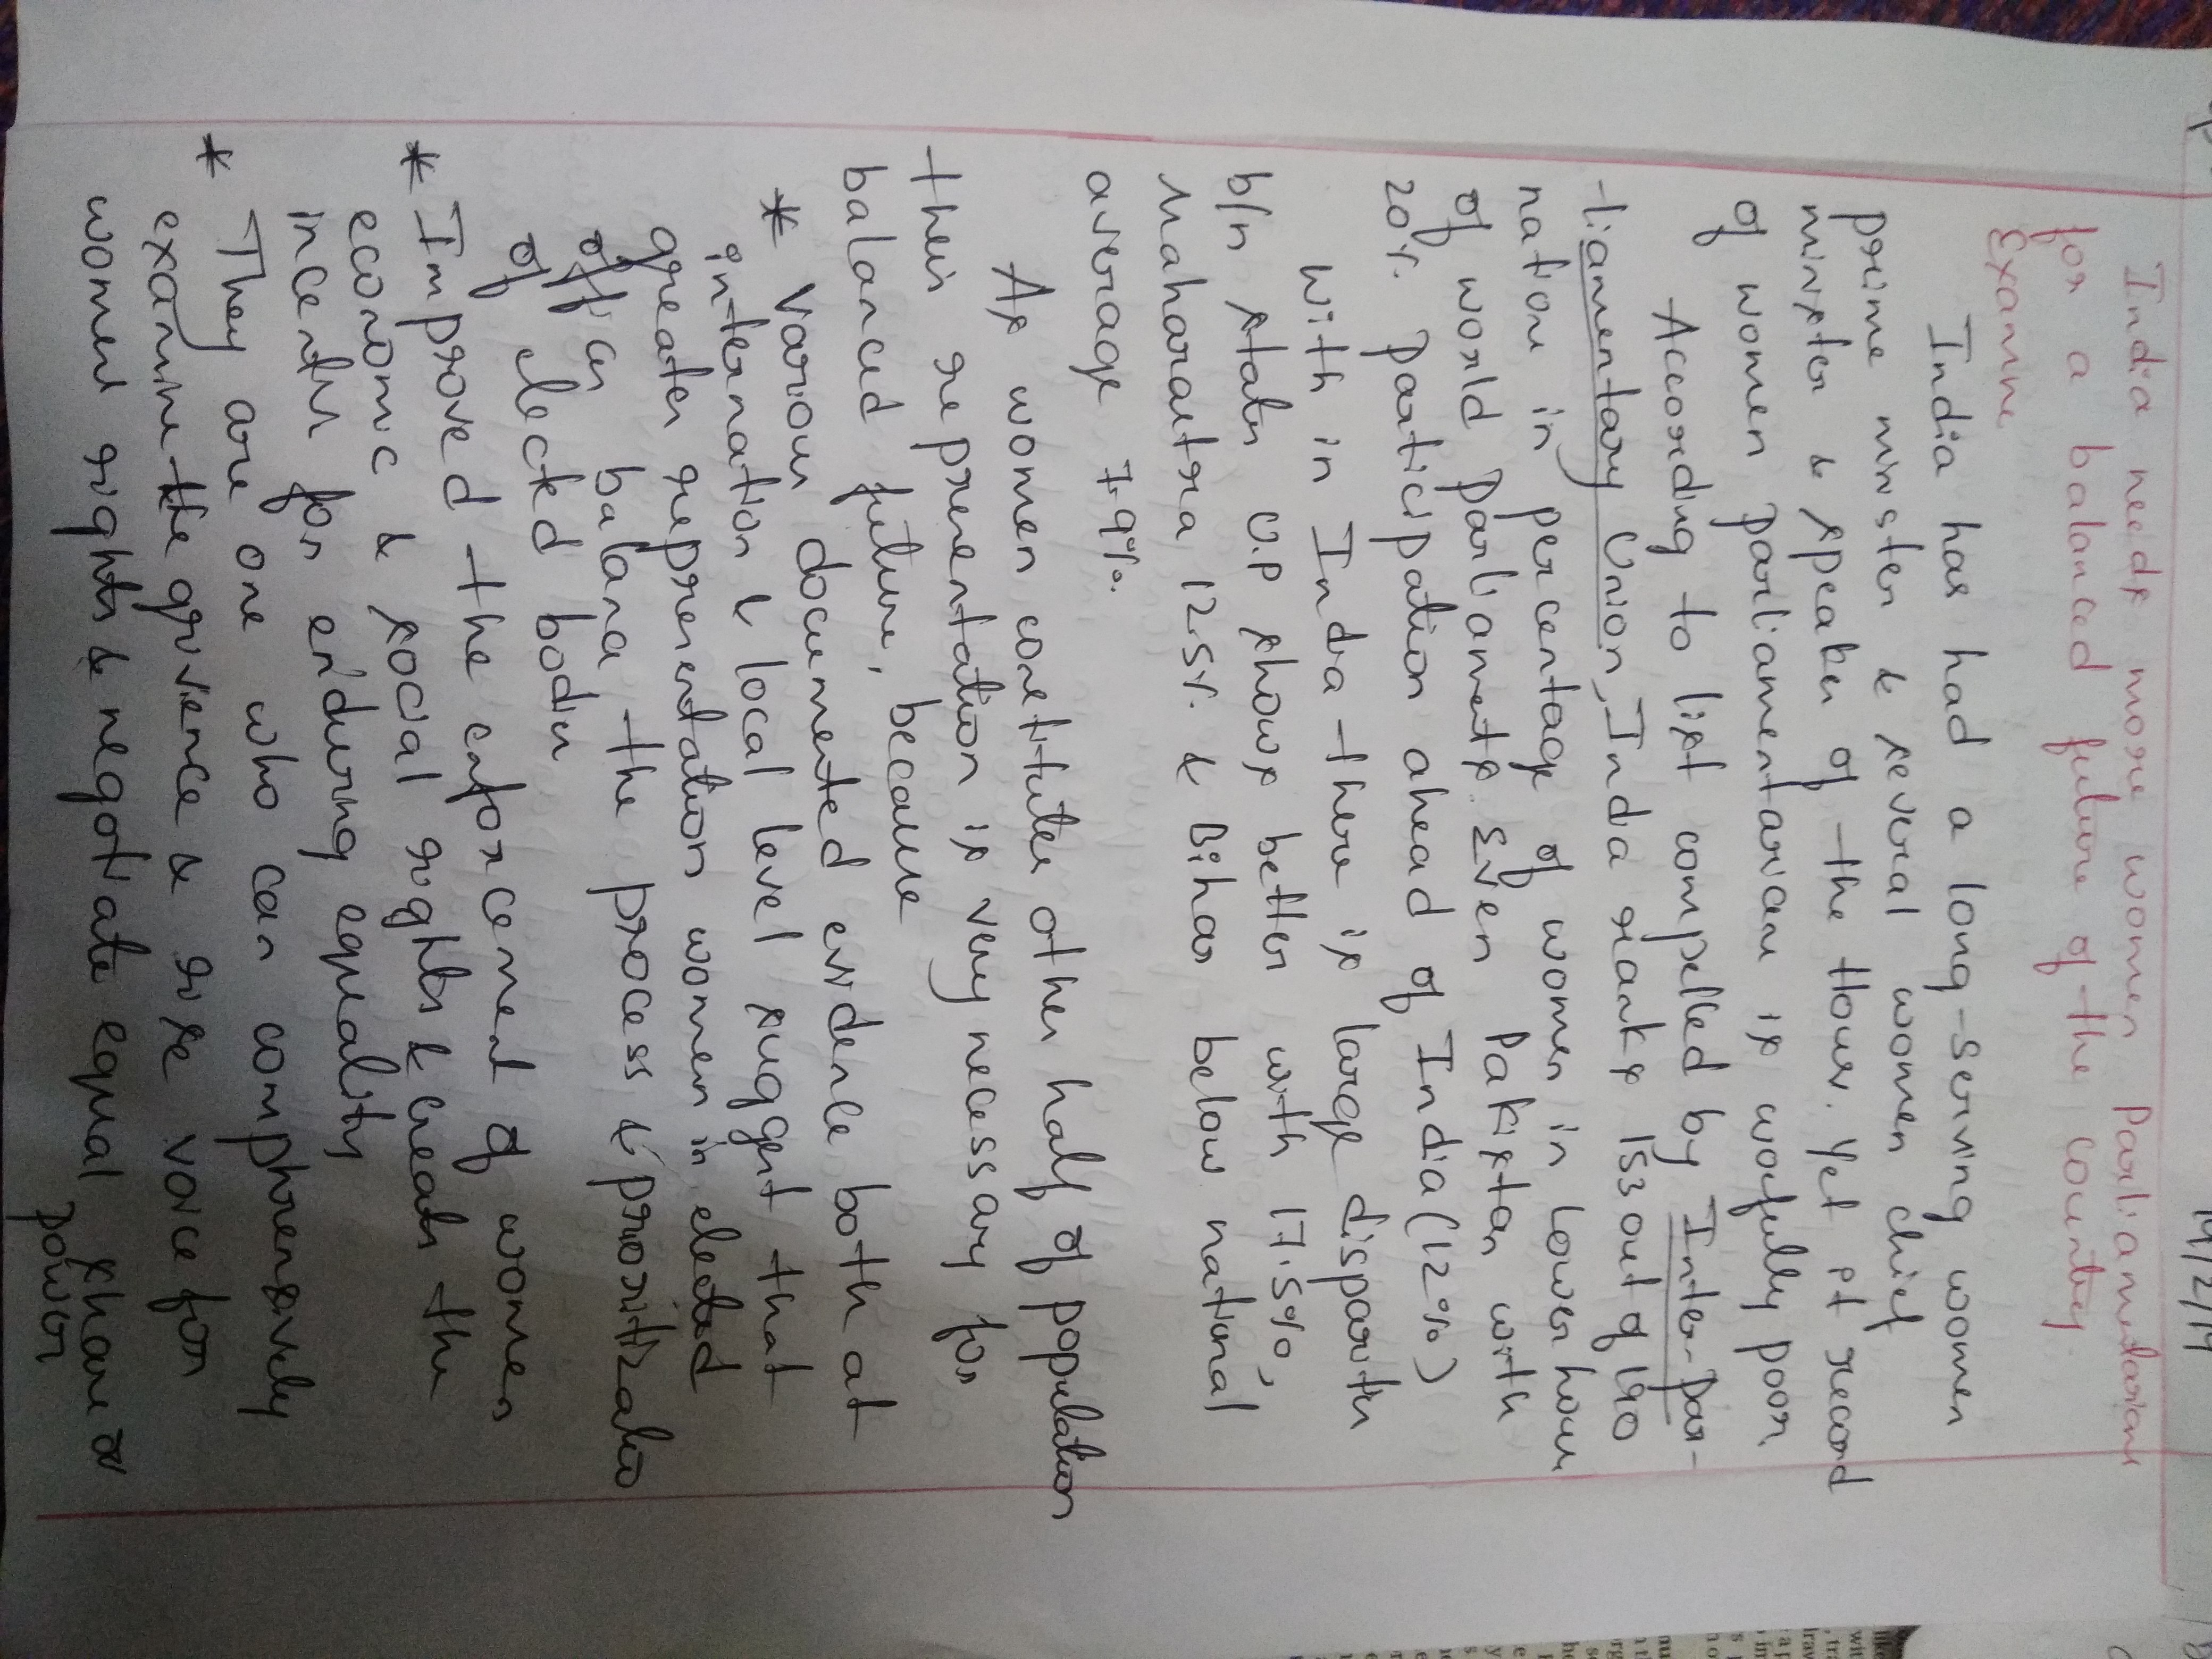 19/2/19
India needs more women Parliamentarians
for a balanced future of the country.
Examine
India has had a long-serving women
prime minster & several women chief
minster & speaker of the House. Yet it record
of women parliamentarian is woefully poor.
According to list compelled by Inter-par-
-liamentary Union, India ranks 153 out of 190
nation in percentage of women in lower house
of world parliaments. Even Pakistan with
20%. participation ahead of India (12%)
with in India there is large disparities
b/n states U.P shows better with 17.5%,
Maharastra 12.5%. & Bihar below national
average 7.9%.
As women constitutes other half of population
their representation is very necessary for
balanced future, because
* Various documented evidence both at
internation & local level suggest that
greater representation women in elected
offices balance the process &
of elected bodies
* Improved the enforcement of women
economic & social rights & create the
incentives for enduring equality
* They are one who can comphrensively
examine the grivence & rise voice for
women rights & negotiate equal share of
power